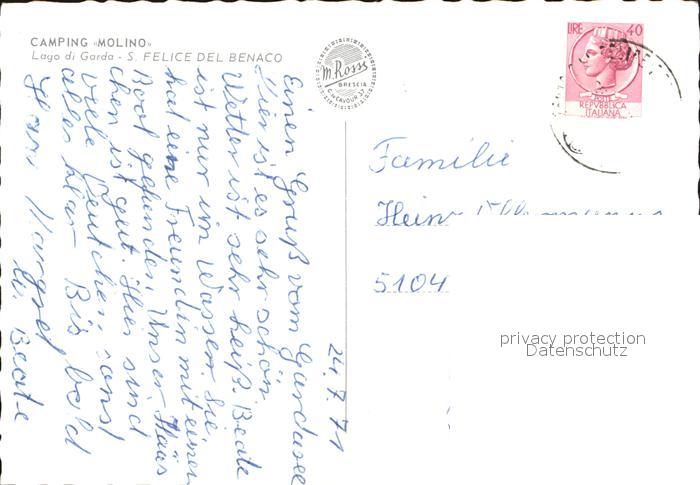 CAMPING «MOLINO»
Lago di Garda - S. FELICE DEL BENACO
M. Rossi
BRESCIA
C. M. CAVOUR 37
LIRE 40
POSTE
REPVBBLICA
ITALIANA
24.7.71
Einen Gruß vom Gardasee
Hier ist es sehr schön.
Wetter ist sehr heiß. Beate
ist nur im Wasser. Sie
hat eine Freundin mit einem
Boot gefunden. Unser Häus
chen ist gut. Hier sind
viele Deutsche. sonst
alles klar. Bis bald
Hans Margret
u. Beate
Familie
Hein
5104
privacy protection
Datenschutz